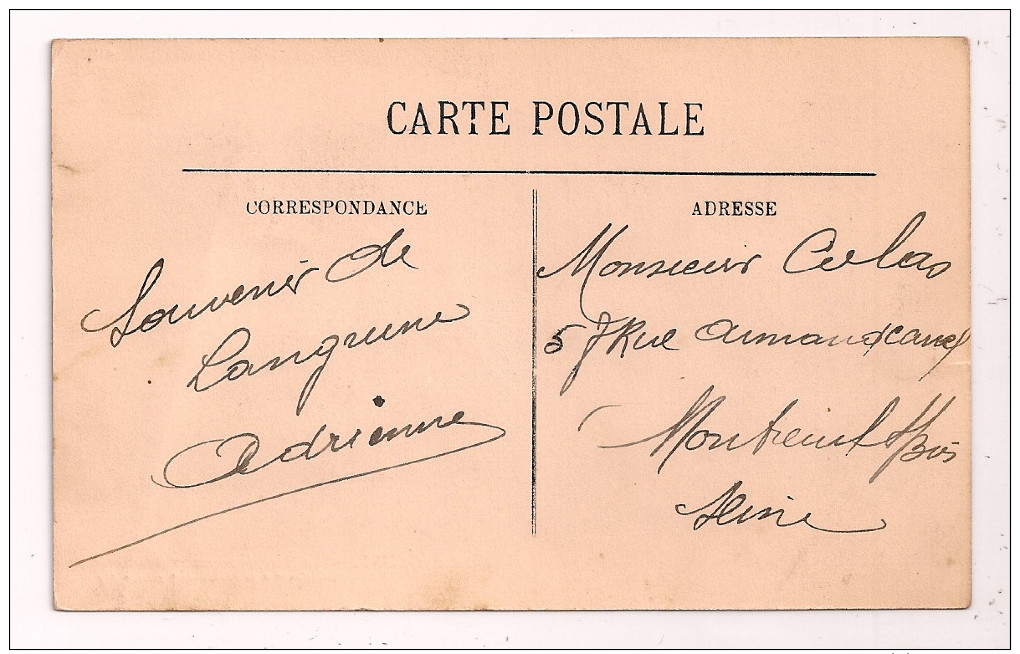 CARTE POSTALE
CORRESPONDANCE
Souvenir de
Langrune
Adrienne
ADRESSE
Monsieur
57 Rue Armand Carrel
Montreuil s/Bois
Seine